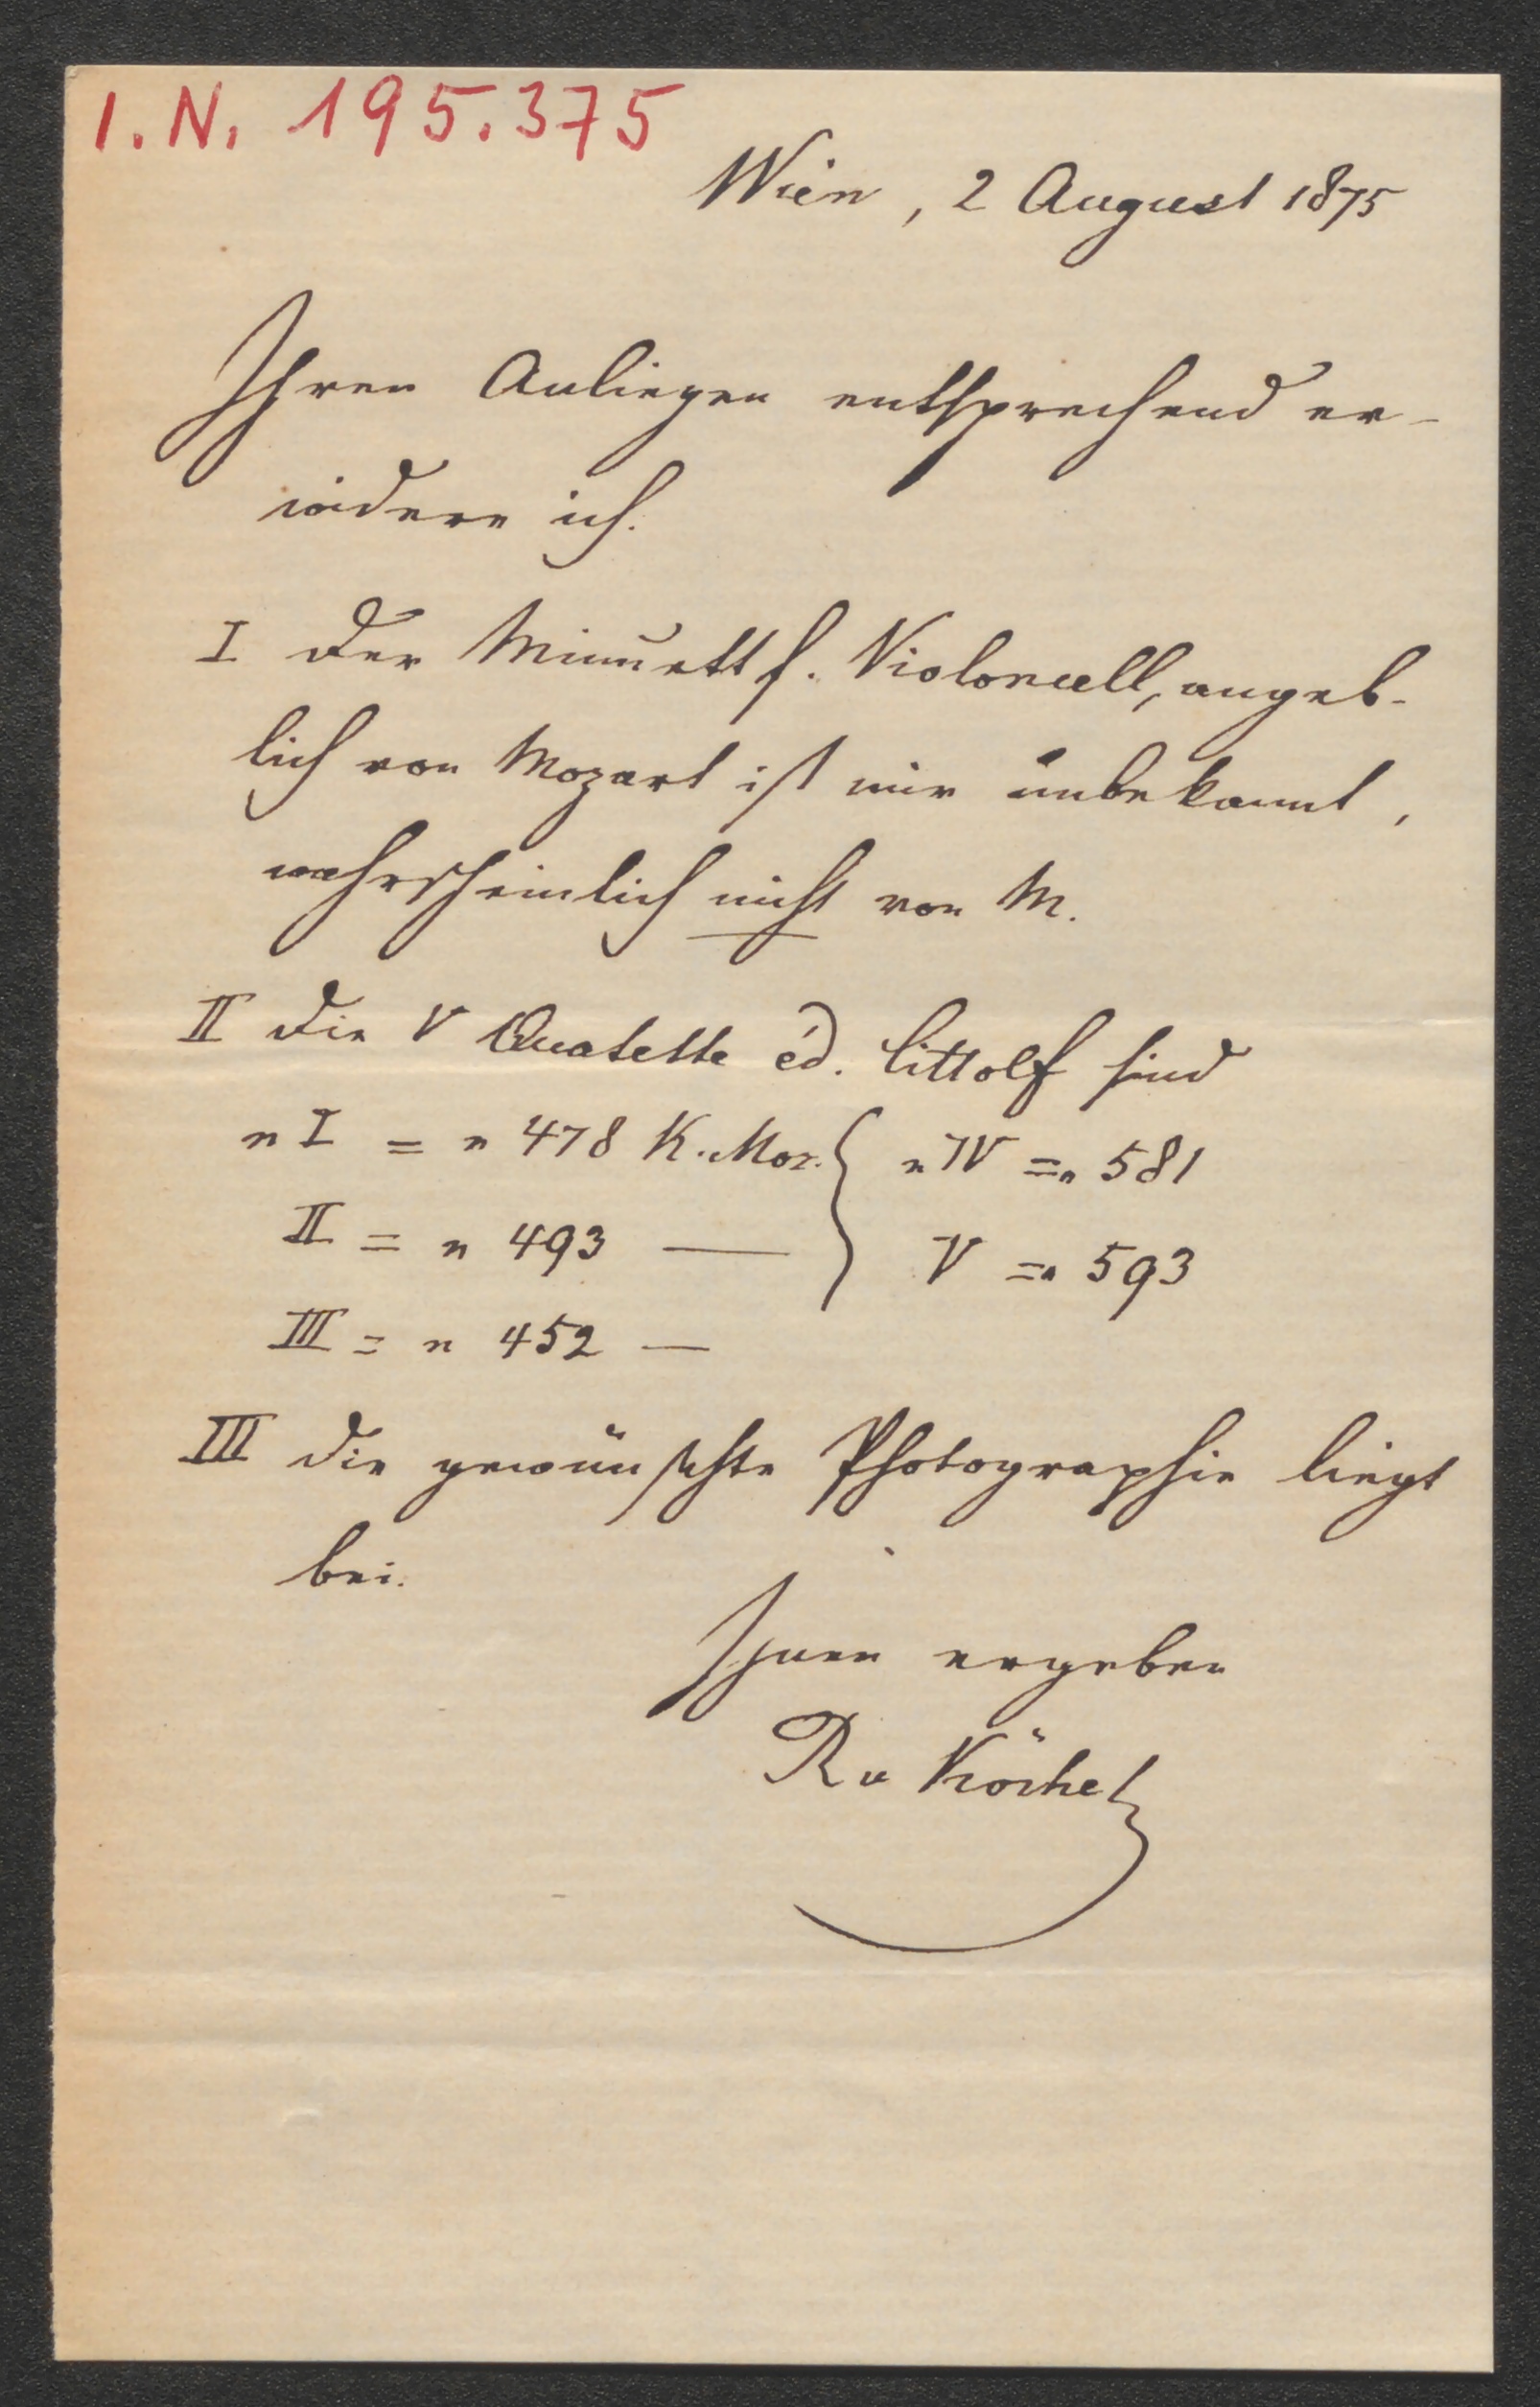 I.N. 195.375
Wien, 2 August 1875
Ihren Anliegen entsprechend er-
widere ich.
I der Minuett f. Violoncell, angeb-
lich von Mozart ist mir unbekannt,
wahrscheinlich nicht von M.
II die V Quatette éd. Littolf sind
n I = n 478 K. Moz. { n IV = n 581
II = n 493 — V = n 593
III = n 452 —
III die gewünschte Photographie liegt
bei.
Ihnen ergeben
R v Köchel